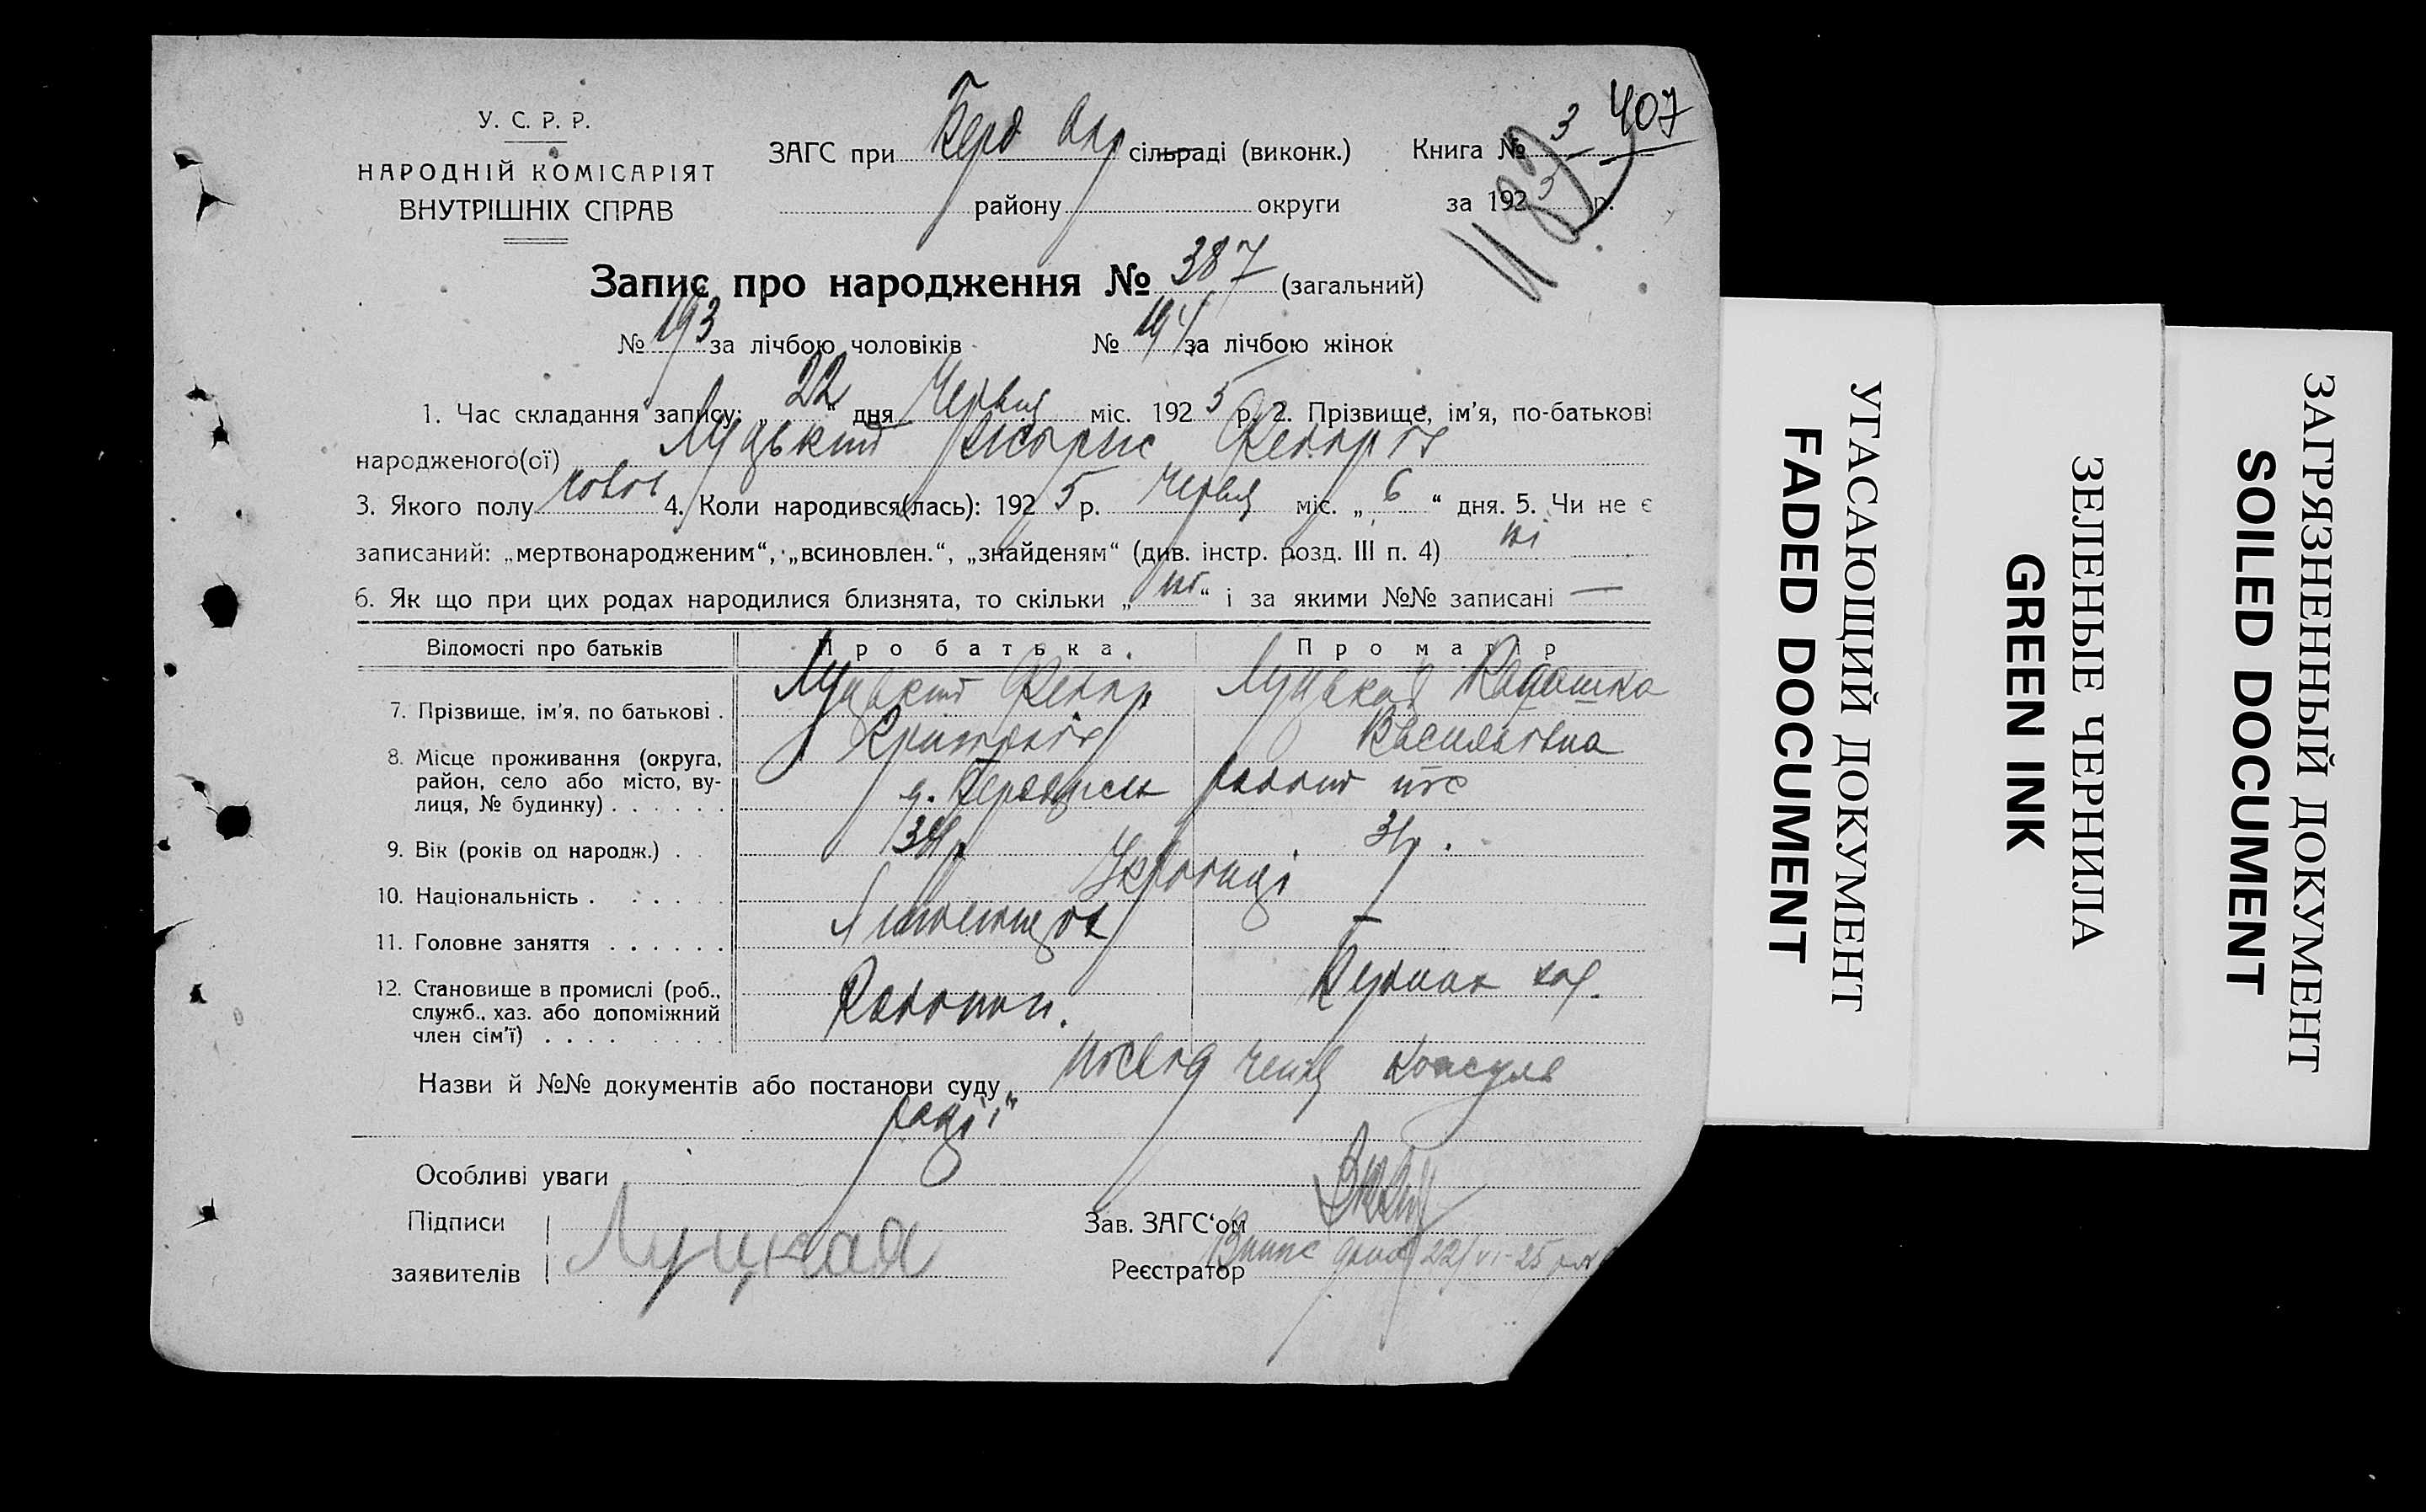 407
У. С. Р. Р.
НАРОДНІЙ КОМІСАРІЯТ
ВНУТРІШНІХ СПРАВ
ЗАГС при Берд Окр сільраді (виконк.) Книга № 3
району округи за 1925 р.
Запис про народження № 387 (загальний)
№ 193 за лічбою чоловіків № 194 за лічбою жінок
1. Час складання запису: „ 22 “ дня Червня міс. 1925 р. 2. Прізвище, ім'я, по-батькові
народженого(ої) Луцький Борис
3. Якого полу чолов 4. Коли народився(лась): 1925 р. Червня міс. „ 6 “ дня. 5. Чи не є
записаний: „мертвонародженим“, „всиновлен.“, „знайденям“ (див. інстр. розд. III п. 4) ні
6. Як що при цих родах народилися близнята, то скільки „ ні “ і за якими №№ записані —
Відомості про батьків Про батька. Про матір
7. Прізвище, ім'я, по батькові . Луцький Луцькая
Василівна
8. Місце проживання (округа, район, село або місто, вулиця, № будинку) . . . . . .
9. Вік (років од народж.) . .
10. Національність . . . . . Українці
11. Головне заняття . . . . . .
12. Становище в промислі (роб., служб., хаз. або допоміжний член сім'ї) . . . .
Назви й №№ документів або постанови суду Посвідчення Консуль
тації"
Особливі уваги
Підписи
заявителів Луцкая
Зав. ЗАГС'ом
Реєстратор
22/VI-25
УГАСАЮЩИЙ ДОКУМЕНТ
FADED DOCUMENT
ЗЕЛЕНЫЕ ЧЕРНИЛА
GREEN INK
ЗАГРЯЗНЕННЫЙ ДОКУМЕНТ
SOILED DOCUMENT